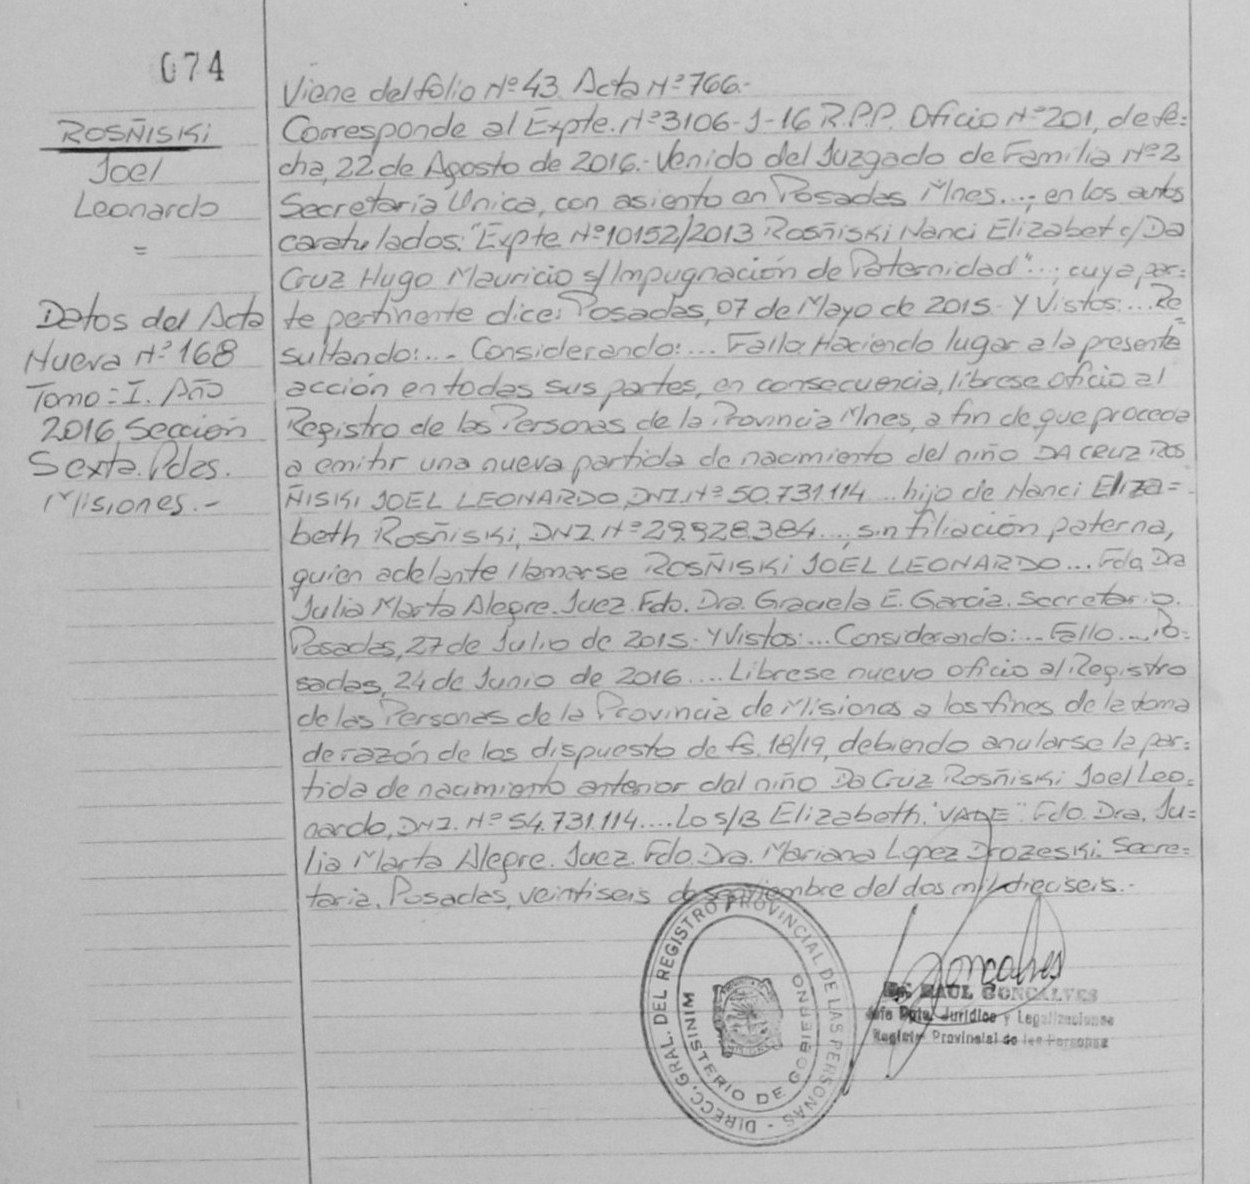 074
ROSÑISKI
Joel
Leonardo
=
Datos del Acta
Nueva Nº 168
Tomo = I. Año
2016, Sección
Sexta. Pdas.
Misiones.-
Viene del folio Nº 43. Acta Nº 766.-
Corresponde al Expte. Nº 3106-J-16 R.P.P. Oficio Nº 201, de fe=
cha, 22 de Agosto de 2016.- Venido del Juzgado de Familia Nº 2
Secretaría Unica, con asiento en Posadas Mnes...; en los autos
caratulados: "Expte Nº 10152/2013 Rosñiski Nanci Elizabet c/ Da
Cruz Hugo Mauricio s/ Impugnación de Paternidad"...; cuya par=
te pertinente dice: Posadas, 07 de Mayo de 2015- Y Vistos:... Re
sultando:...- Considerando:... Fallo: Haciendo lugar a la presente
acción en todas sus partes, en consecuencia, líbrese oficio al
Registro de las Personas de la Provincia Mnes, a fin de que proceda
a emitir una nueva partida de nacimiento del niño DA CRUZ ROS
ÑISKI JOEL LEONARDO, DNI. Nº 50.731.114... hijo de Nanci Eliza=
beth Rosñiski, DNI. Nº 29.928.384..., sin filiación paterna,
quien adelante llamarse ROSÑISKI JOEL LEONARDO... Fdo. Dra
Julia Marta Alegre. Juez. Fdo. Dra. Graciela E. Garcia. Secretaria.
Posadas, 27 de Julio de 2015- Y Vistos:... Considerando:... Fallo... Po=
sadas, 24 de Junio de 2016.... Librese nuevo oficio al Registro
de las Personas de la Provincia de Misiones a los fines de la toma
de razón de los dispuesto de fs. 18/19, debiendo anularse la par=
tida de nacimiento anterior del niño Da Cruz Rosñiski Joel Leo=
nardo, DNI. Nº 54.731.114.... Lo s/B Elizabeth. "VALE". Fdo. Dra. Ju=
lia Marta Alegre. Juez. Fdo. Dra. Mariana Lopez Drozeski. Secre=
taria. Posadas, veintiseis de septiembre del dos mil dieciseis.-
DIRECC. GRAL. DEL REGISTRO PROVINCIAL DE LAS PERSONAS -
MINISTERIO DE GOBIERNO
Goncalves
Dr. RAUL GONCALVES
Jefe Dpto. Jurídico y Legalizaciones
Registro Provincial de las Personas